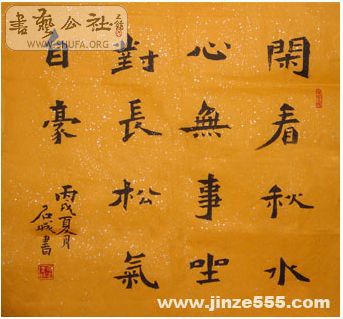 閑看秋水
心無事坐
對長松氣
自豪
丙戌夏月
石城書
書藝公社
WWW.SHUFA.ORG
www.jinze555.com